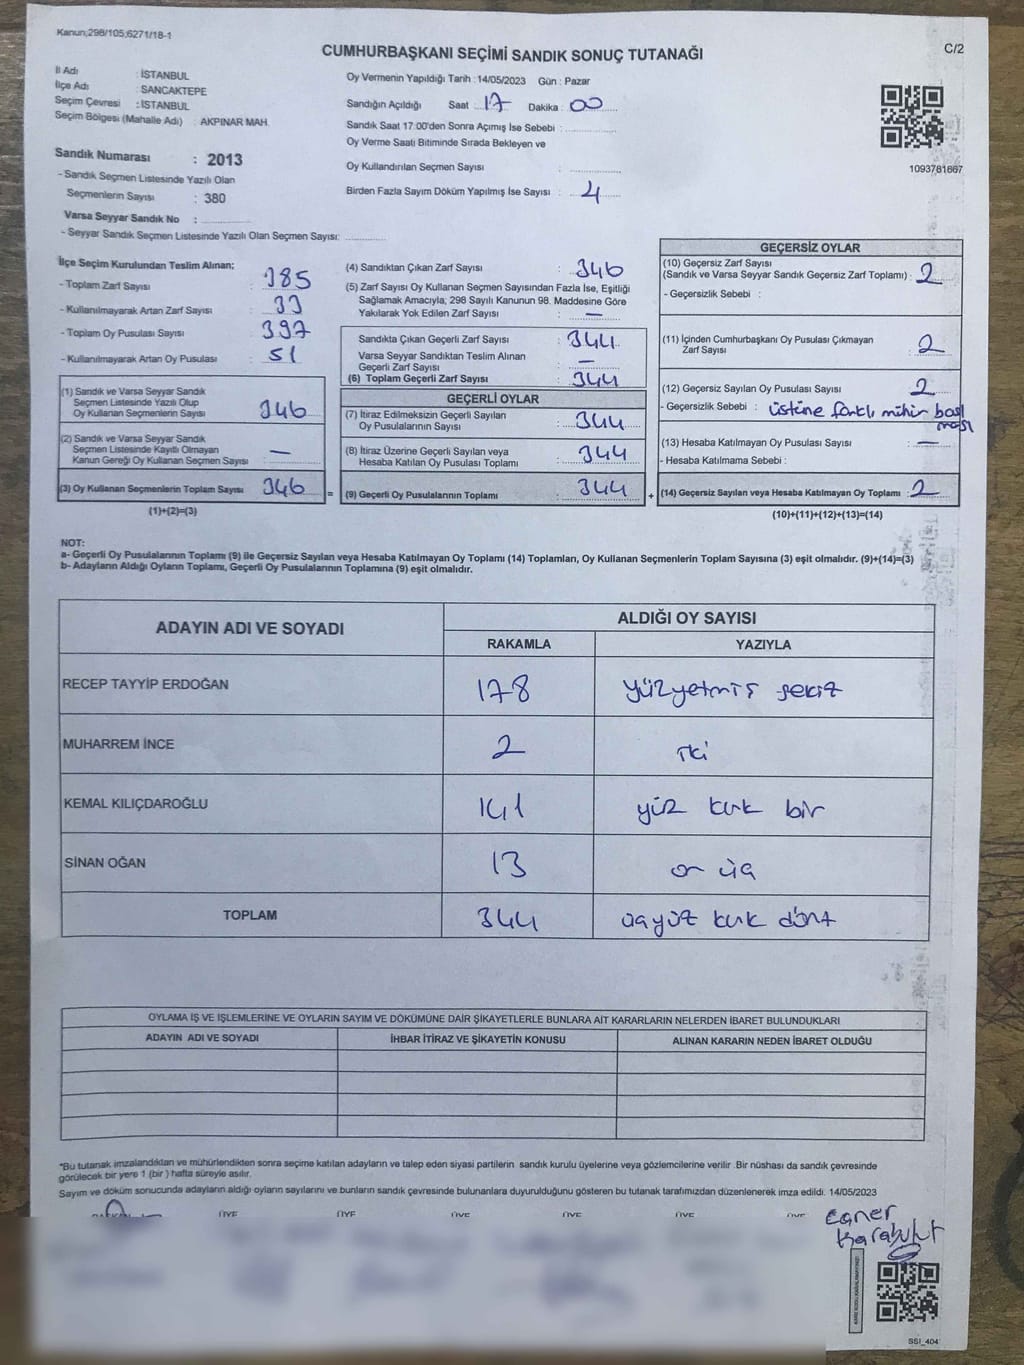 Kanun;298/105;6271/18-1
C/2
CUMHURBAŞKANI SEÇİMİ SANDIK SONUÇ TUTANAĞI
İl Adı : İSTANBUL
İlçe Adı : SANCAKTEPE
Seçim Çevresi : İSTANBUL
Seçim Bölgesi (Mahalle Adı) : AKPINAR MAH.
Sandık Numarası : 2013
- Sandık Seçmen Listesinde Yazılı Olan
Seçmenlerin Sayısı : 380
Varsa Seyyar Sandık No :
- Seyyar Sandık Seçmen Listesinde Yazılı Olan Seçmen Sayısı:
Oy Vermenin Yapıldığı Tarih : 14/05/2023 Gün : Pazar
Sandığın Açıldığı Saat : 17 Dakika : 00
Sandık Saat 17:00'den Sonra Açımış İse Sebebi :
Oy Verme Saati Bitiminde Sırada Bekleyen ve
Oy Kullandırılan Seçmen Sayısı :
Birden Fazla Sayım Döküm Yapılmış İse Sayısı : 4
1093781667
İlçe Seçim Kurulundan Teslim Alınan;
- Toplam Zarf Sayısı : 385
- Kullanılmayarak Artan Zarf Sayısı : 33
- Toplam Oy Pusulası Sayısı : 397
- Kullanılmayarak Artan Oy Pusulası : 51
(1) Sandık ve Varsa Seyyar Sandık
Seçmen Listesinde Yazılı Olup
Oy Kullanan Seçmenlerin Sayısı : 346
(2) Sandık ve Varsa Seyyar Sandık
Seçmen Listesinde Kayıtlı Olmayan
Kanun Gereği Oy Kullanan Seçmen Sayısı : —
(3) Oy Kullanan Seçmenlerin Toplam Sayısı : 346 =
(1)+(2)=(3)
(4) Sandıktan Çıkan Zarf Sayısı : 346
(5) Zarf Sayısı Oy Kullanan Seçmen Sayısından Fazla İse, Eşitliği
Sağlamak Amacıyla, 298 Sayılı Kanunun 98. Maddesine Göre
Yakılarak Yok Edilen Zarf Sayısı : —
Sandıkta Çıkan Geçerli Zarf Sayısı : 344
Varsa Seyyar Sandıktan Teslim Alınan
Geçerli Zarf Sayısı : —
(6) Toplam Geçerli Zarf Sayısı : 344
GEÇERLİ OYLAR
(7) İtiraz Edilmeksizin Geçerli Sayılan
Oy Pusulalarının Sayısı : 344
(8) İtiraz Üzerine Geçerli Sayılan veya
Hesaba Katılan Oy Pusulası Toplamı : 344
(9) Geçerli Oy Pusulalarının Toplamı : 344 +
GEÇERSİZ OYLAR
(10) Geçersiz Zarf Sayısı
(Sandık ve Varsa Seyyar Sandık Geçersiz Zarf Toplamı) : 2
- Geçersizlik Sebebi :
(11) İçinden Cumhurbaşkanı Oy Pusulası Çıkmayan
Zarf Sayısı : 2
(12) Geçersiz Sayılan Oy Pusulası Sayısı : 2
- Geçersizlik Sebebi : üstüne farklı mühür basıl
ması
(13) Hesaba Katılmayan Oy Pusulası Sayısı : —
- Hesaba Katılmama Sebebi :
(14) Geçersiz Sayılan veya Hesaba Katılmayan Oy Toplamı : 2
(10)+(11)+(12)+(13)=(14)
NOT:
a- Geçerli Oy Pusulalarının Toplamı (9) ile Geçersiz Sayılan veya Hesaba Katılmayan Oy Toplamı (14) Toplamları, Oy Kullanan Seçmenlerin Toplam Sayısına (3) eşit olmalıdır. (9)+(14)=(3)
b- Adayların Aldığı Oyların Toplamı, Geçerli Oy Pusulalarının Toplamına (9) eşit olmalıdır.
ADAYIN ADI VE SOYADI
ALDIĞI OY SAYISI
RAKAMLA YAZIYLA
RECEP TAYYİP ERDOĞAN 178 yüzyetmiş sekiz
MUHARREM İNCE 2 iki
KEMAL KILIÇDAROĞLU 141 yüz kırk bir
SİNAN OĞAN 13 on üç
TOPLAM 344 üçyüz kırk dört
OYLAMA İŞ VE İŞLEMLERİNE VE OYLARIN SAYIM VE DÖKÜMÜNE DAİR ŞİKAYETLERLE BUNLARA AİT KARARLARIN NELERDEN İBARET BULUNDUKLARI
ADAYIN ADI VE SOYADI İHBAR İTİRAZ VE ŞİKAYETİN KONUSU ALINAN KARARIN NEDEN İBARET OLDUĞU
*Bu tutanak imzalandıktan ve mühürlendikten sonra seçime katılan adayların ve talep eden siyasi partilerin sandık kurulu üyelerine veya gözlemcilerine verilir .Bir nüshası da sandık çevresinde
görülecek bir yere 1 (bir ) hafta süreyle asılır.
Sayım ve döküm sonucunda adayların aldığı oyların sayılarını ve bunların sandık çevresinde bulunanlara duyurulduğunu gösteren bu tutanak tarafımızdan düzenlenerek imza edildi. 14/05/2023
BAŞKAN ÜYE ÜYE ÜYE ÜYE ÜYE ÜYE
Caner
Karabulut
SSI_404